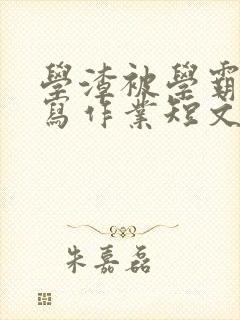 學渣被學霸
寫作業短文
朱嘉磊